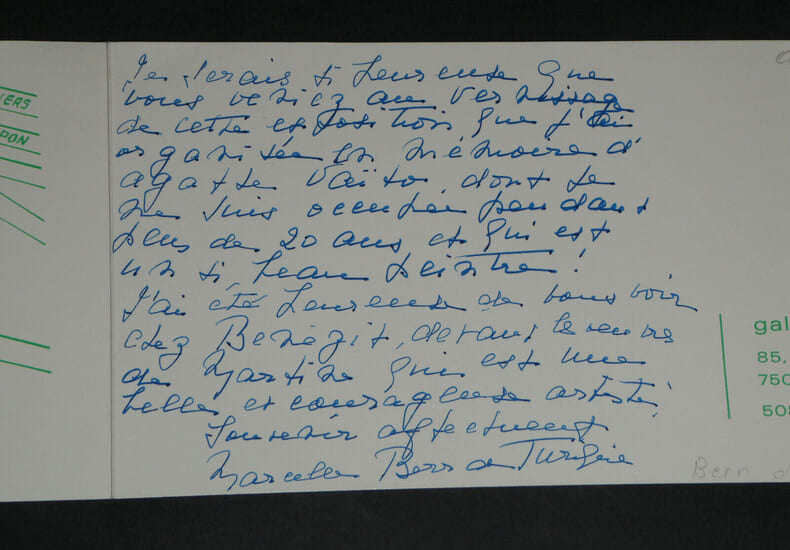 IERS
PON
Je serais si heureuse que
vous veniez au vernissage
de cette exposition que j'ai
organisée en mémoire d'
agathe Vaïto, dont je
me suis occupée pendant
plus de 20 ans et qui est
un si beau peintre!
J'ai été heureuse de vous voir
chez Benezit, devant les
de Martine qui est une
belle et courageuse artiste!
Souvenir affectueux
Marcelle Berr de Turique
gal
85,
750
508
Berr d